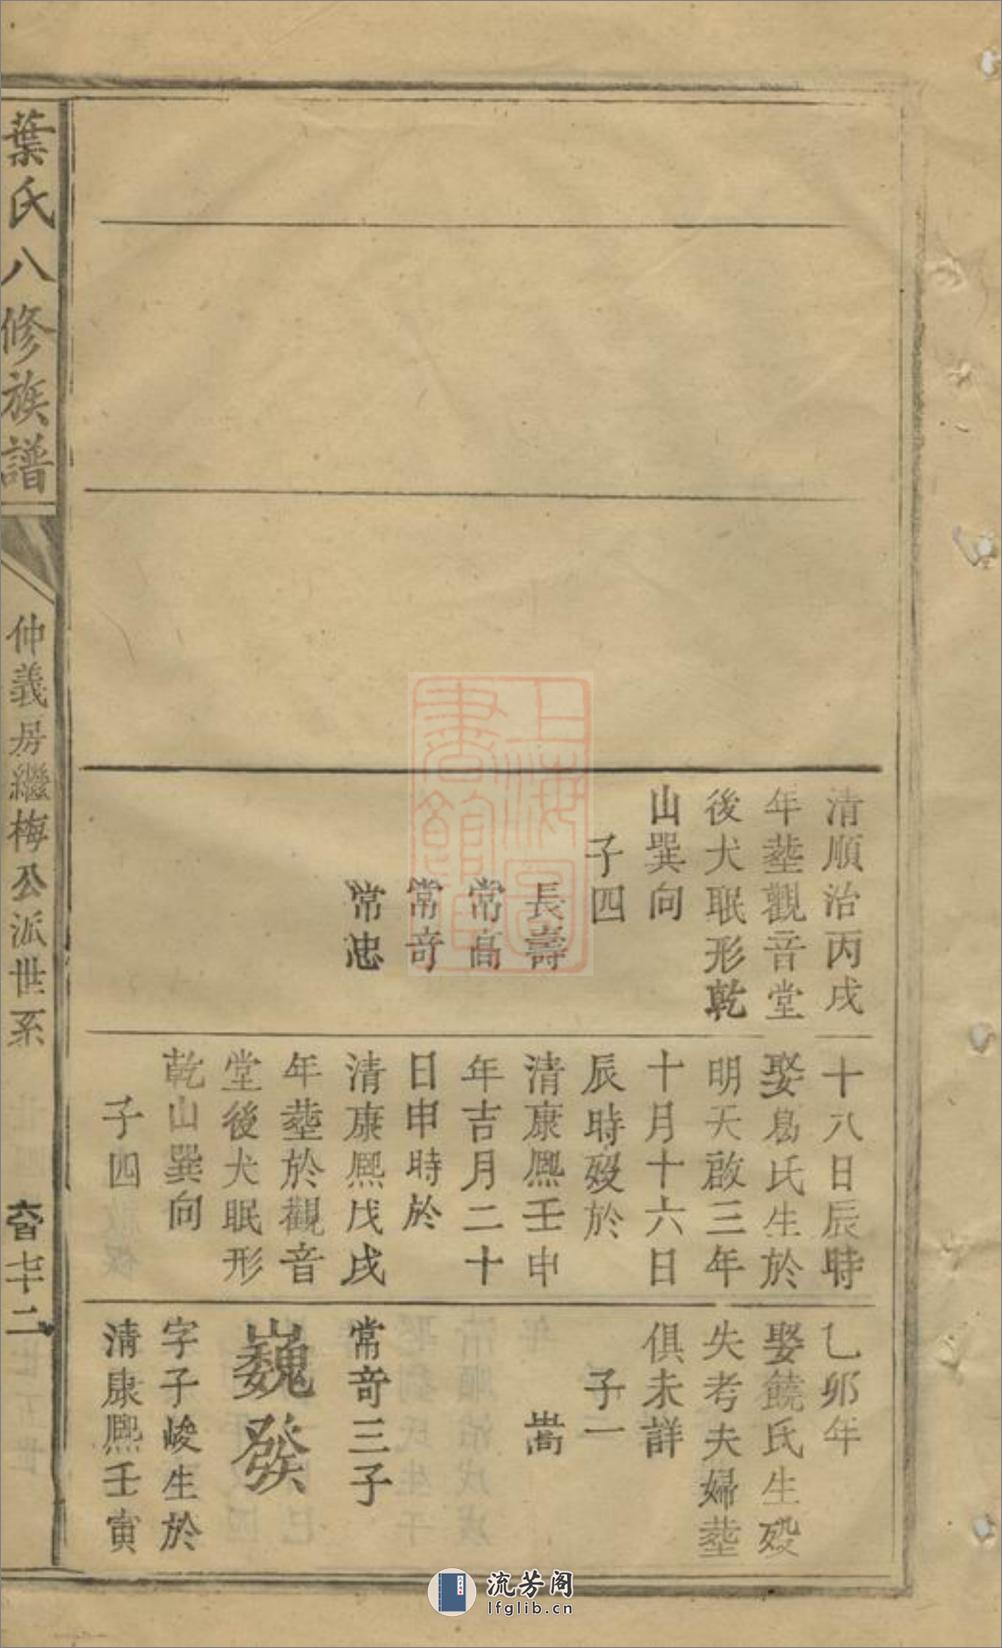 清順治丙戌
年塟觀音堂
後犬眠形乾
山巽向
子四
長壽
常高
常奇
常忠
十八日辰時
娶葛氏生於
明天啟三年
十月十六日
辰時殁於
清康熙壬申
年吉月二十
日申時於
清康熙戊戌
年塟於觀音
堂後犬眠形
乾山巽向
子四
乙卯年
娶饒氏生殁
失考夫婦塟
俱未詳
子一
嵩
常奇三子
巍發
字子峻生於
清康熙壬寅
葉氏八修族譜
仲義房繼梅公派世系
上海圖書館藏
流芳阁
lfglib.cn